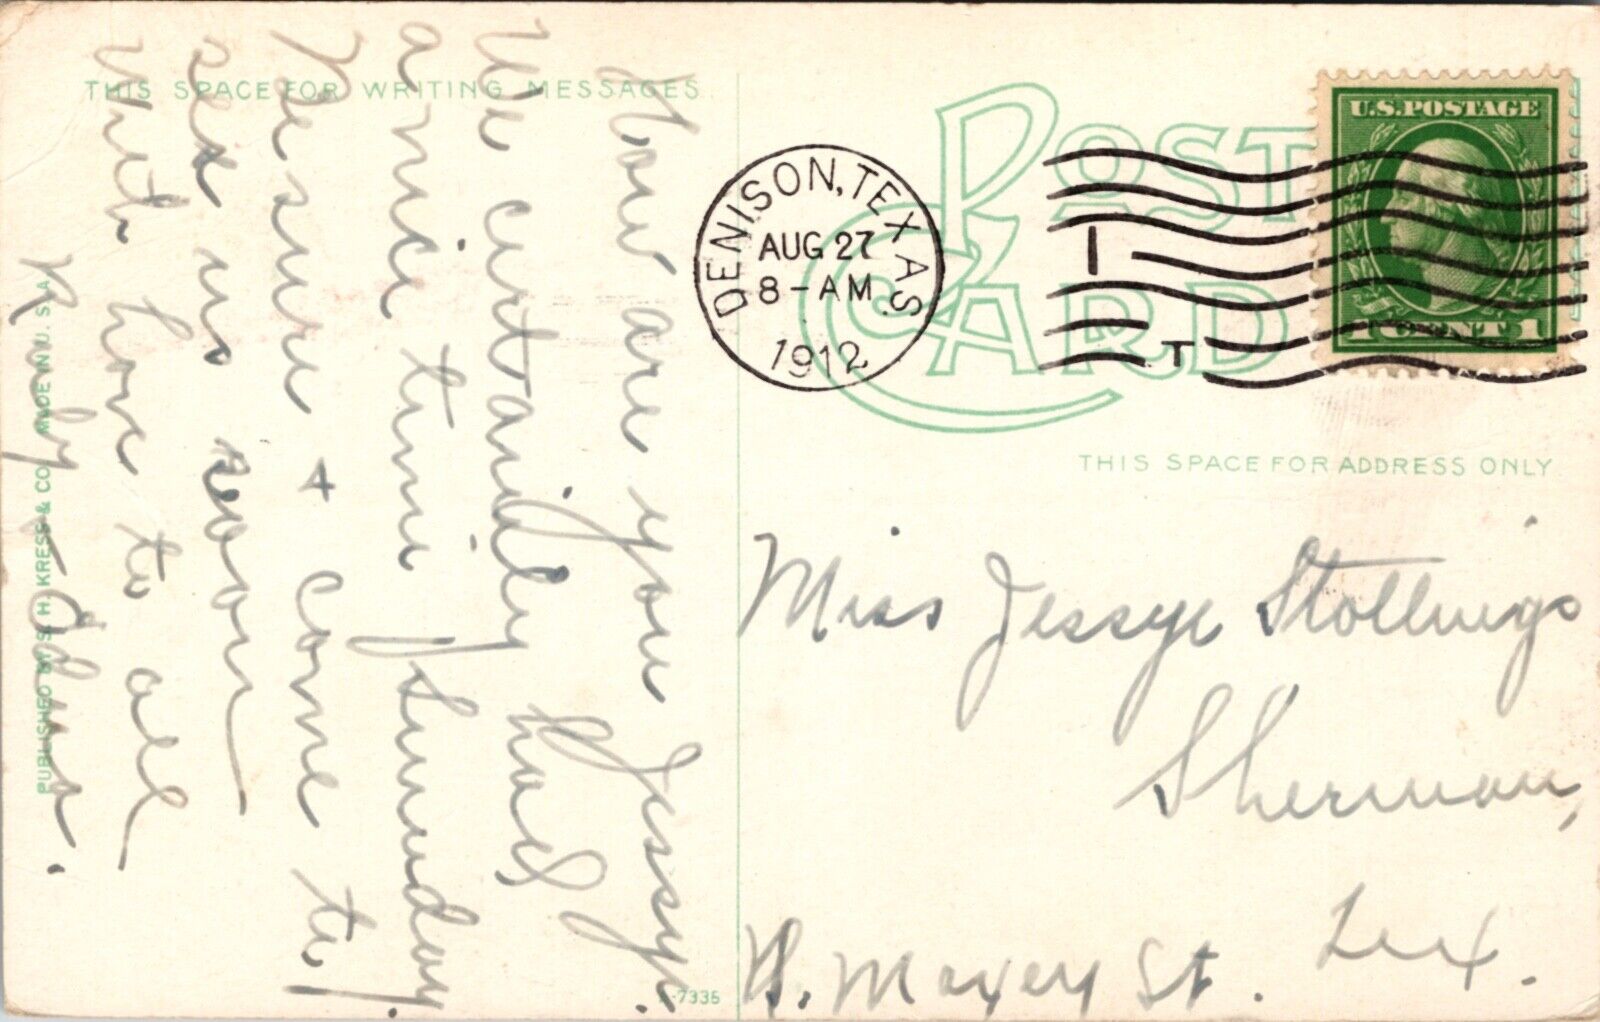 THIS SPACE FOR WRITING MESSAGES.
How are you Jessye.
We certanily had
a nice time Sunday.
Be sure + come to
see us soon
With love to all
Ruby Adams.
PUBLISHED BY S. H. KRESS & CO. MADE IN U. S. A.
A-7335
POST CARD
DENISON, TEXAS.
AUG 27
8-AM
1912
1
T
U.S. POSTAGE
1 CENT 1
THIS SPACE FOR ADDRESS ONLY
Miss Jessye Stollings
Sherman,
Tex.
N. Maxey St.